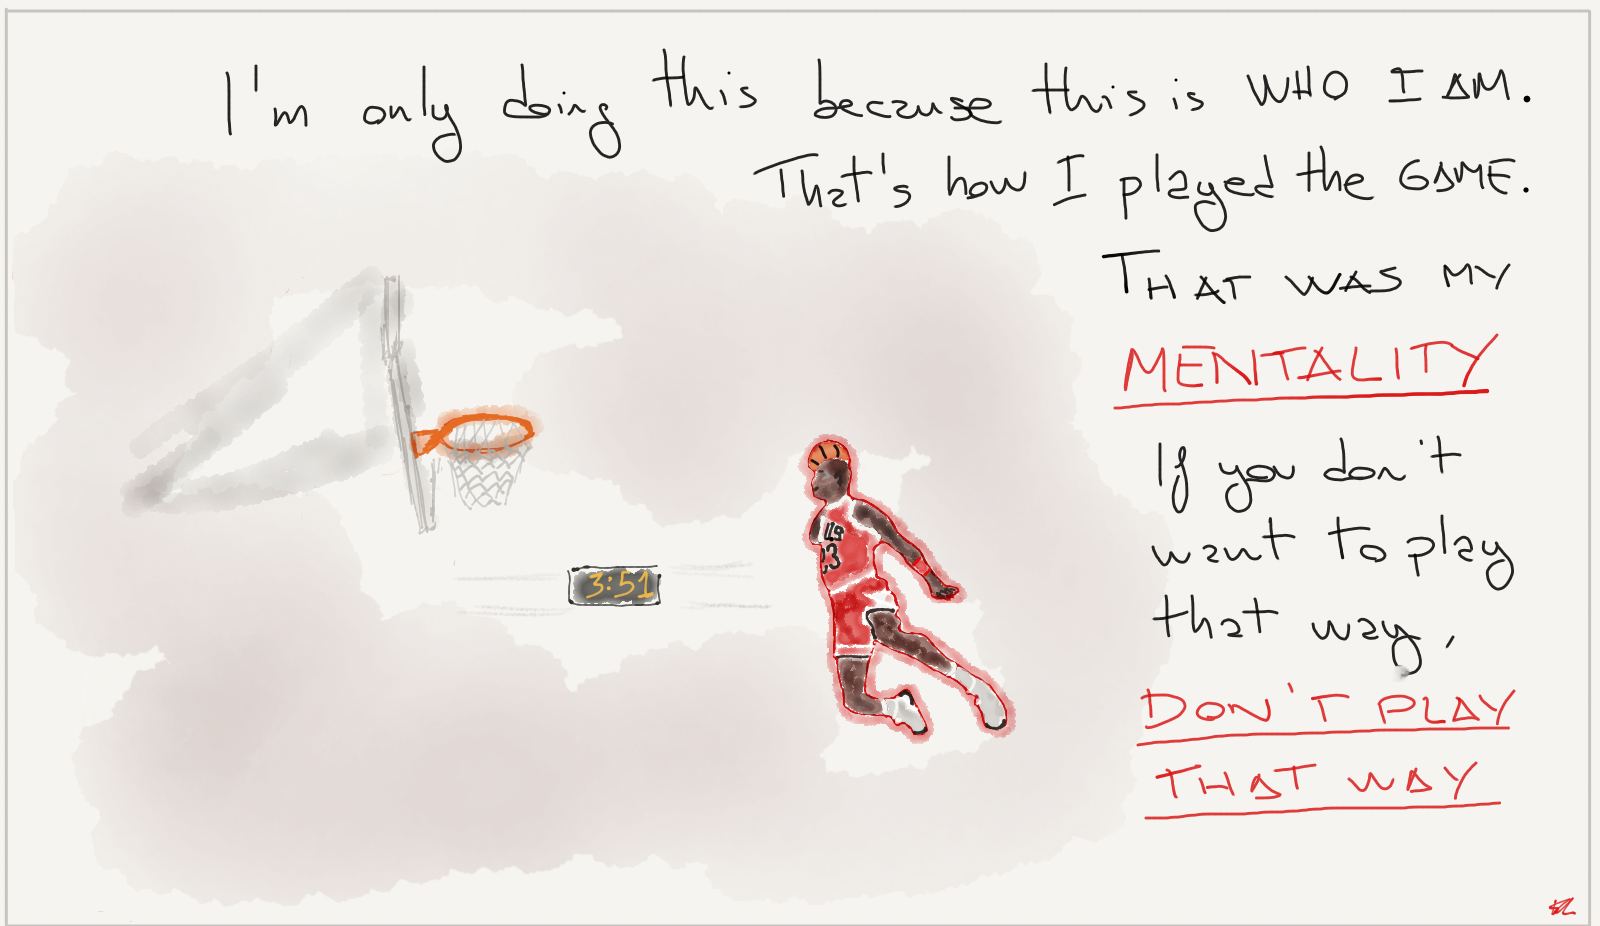 I'm only doing this because this is WHO I AM.
That's how I played the GAME.
THAT WAS MY
MENTALITY
If you don't
want to play
that way,
DON'T PLAY
THAT WAY
3:51
LLS
23